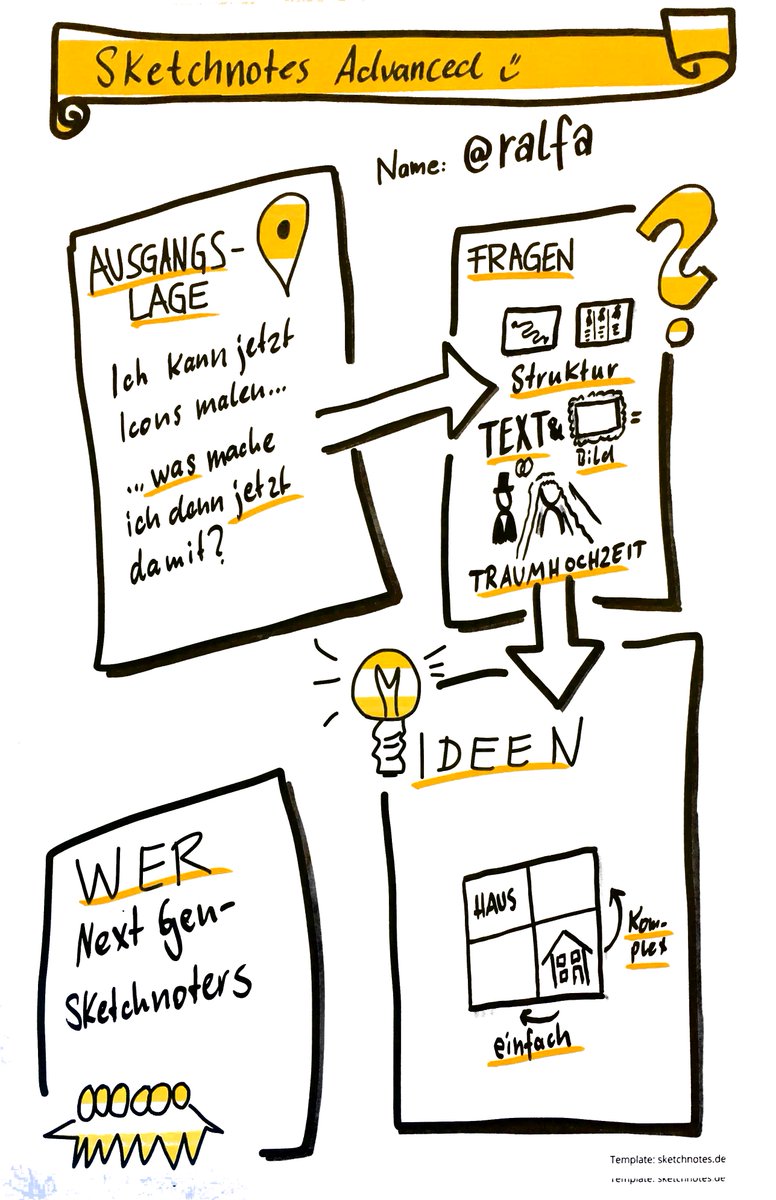 Sketchnotes Advanced
Name: @ralfa
AUSGANGS-
LAGE
Ich kann jetzt
Icons malen...
...was mache
ich denn jetzt
damit?
FRAGEN
?
Struktur
TEXT & =
Bild
TRAUMHOCHZEIT
IDEEN
HAUS
Kom-
plex
einfach
WER
Next Gen-
Sketchnoters
Template: sketchnotes.de
Template: sketchnotes.de